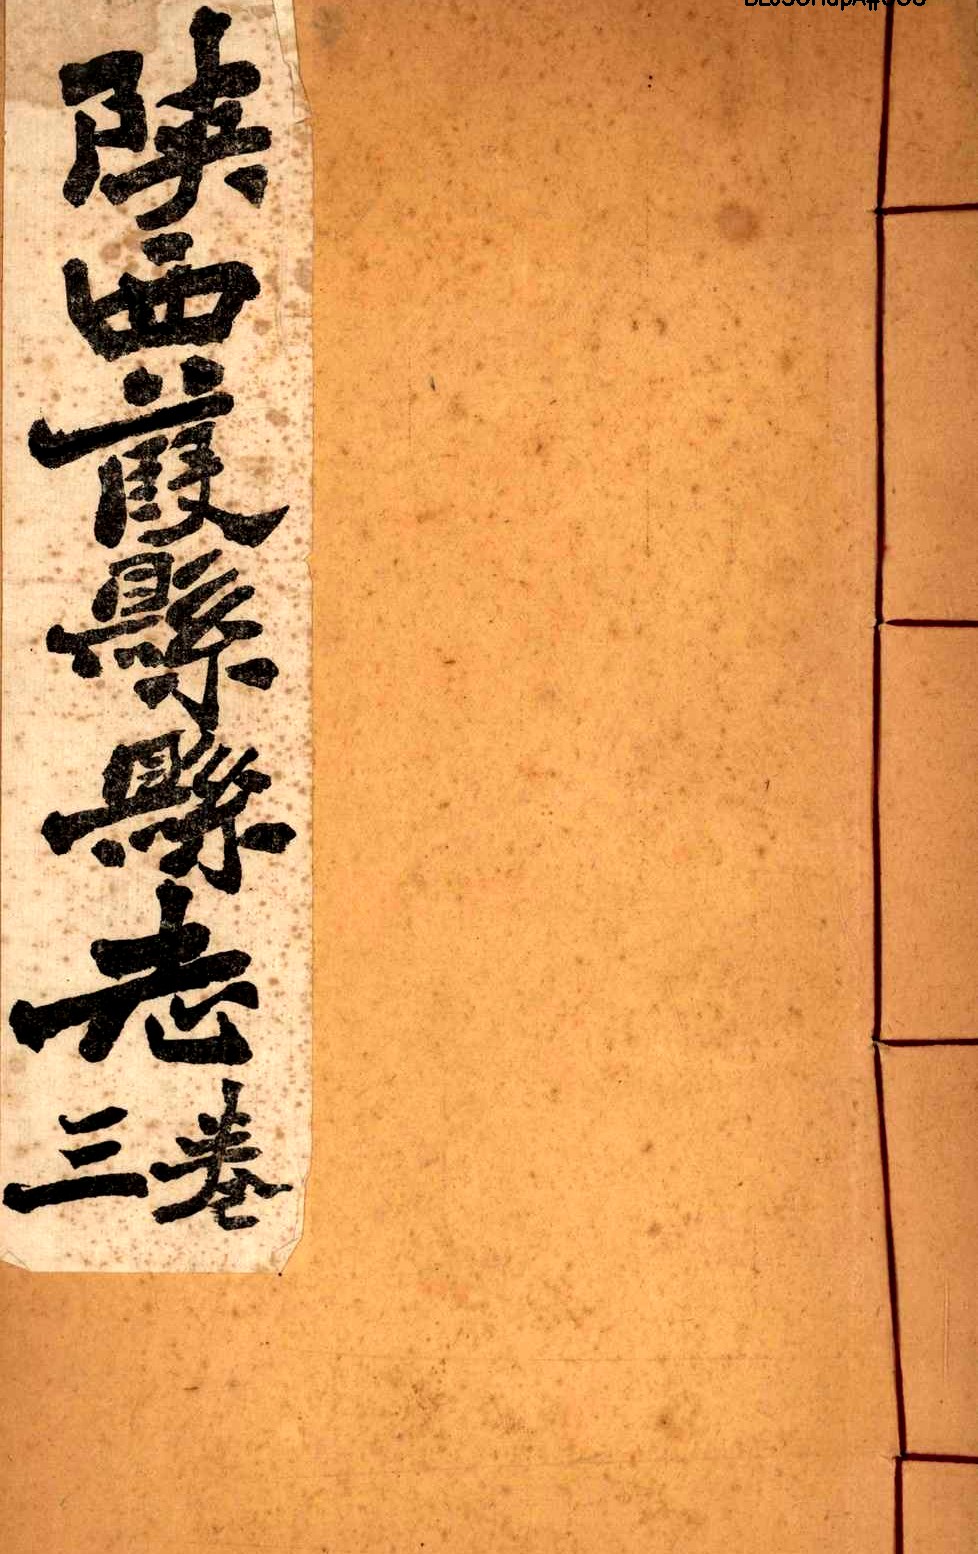 陝西葭縣縣志
卷三